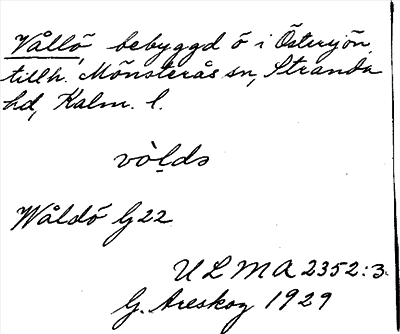 Vållö, bebyggd ö i Östersjön,
tillh. Mönsterås sn, Stranda
hd, Kalm. l.
Wåldö G22
ULMA 2352:3.
G. Areskog 1929